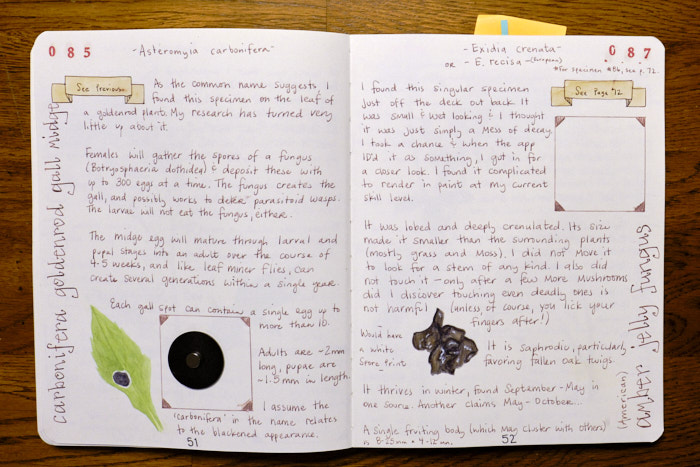 085
-Asteromyia carbonifera-
See Previous
As the common name suggests, I
found this specimen on the leaf of
a goldenrod plant. My research has turned very
little up about it.
Females will gather the spores of a fungus
(Botryosphaeria dothidea) & deposit these with
up to 300 eggs at a time. The fungus creates the
gall, and possibly works to deter parasitoid wasps.
The larvae will not eat the fungus, either.
The midge egg will mature through larval and
pupal stages into an adult over the course of
4-5 weeks, and like leaf miner flies, can
create several generations within a single year.
Each gall spot can contain a single egg up to
more than 10.
Adults are ~2mm
long, pupae are
~1.5 mm in length.
I assume the
'carbonifera' in the name relates
to the blackened appearance.
carbonifera goldenrod gall midge
51
-Exidia crenata-
or - E. recisa -(European)
087
*For specimen #86, see p. 72.
See Page 72
I found this singular specimen
just off the deck out back. It
was small & wet looking & I thought
it was just simply a mess of decay.
I took a chance & when the app
ID'd it as something, I got in for
a closer look. I found it complicated
to render in paint at my current
skill level.
It was lobed and deeply crenulated. Its size
made it smaller than the surrunding plants
(mostly grass and moss). I did not move it
to look for a stem of any kind. I also did
not touch it - only after a few more mushrooms
did I discover touching even deadly ones is
not harmful (unless, of course, you lick your
fingers after!)
Would have
a white
spore print
It is saphrodic, particularly
favoring fallen oak twigs.
It thrives in winter, found September-May in
one source. Another claims May-October...
A single fruiting body (which may cluster with others)
is 8-25mm × 4-12mm.
(American)
amber jelly fungus
52